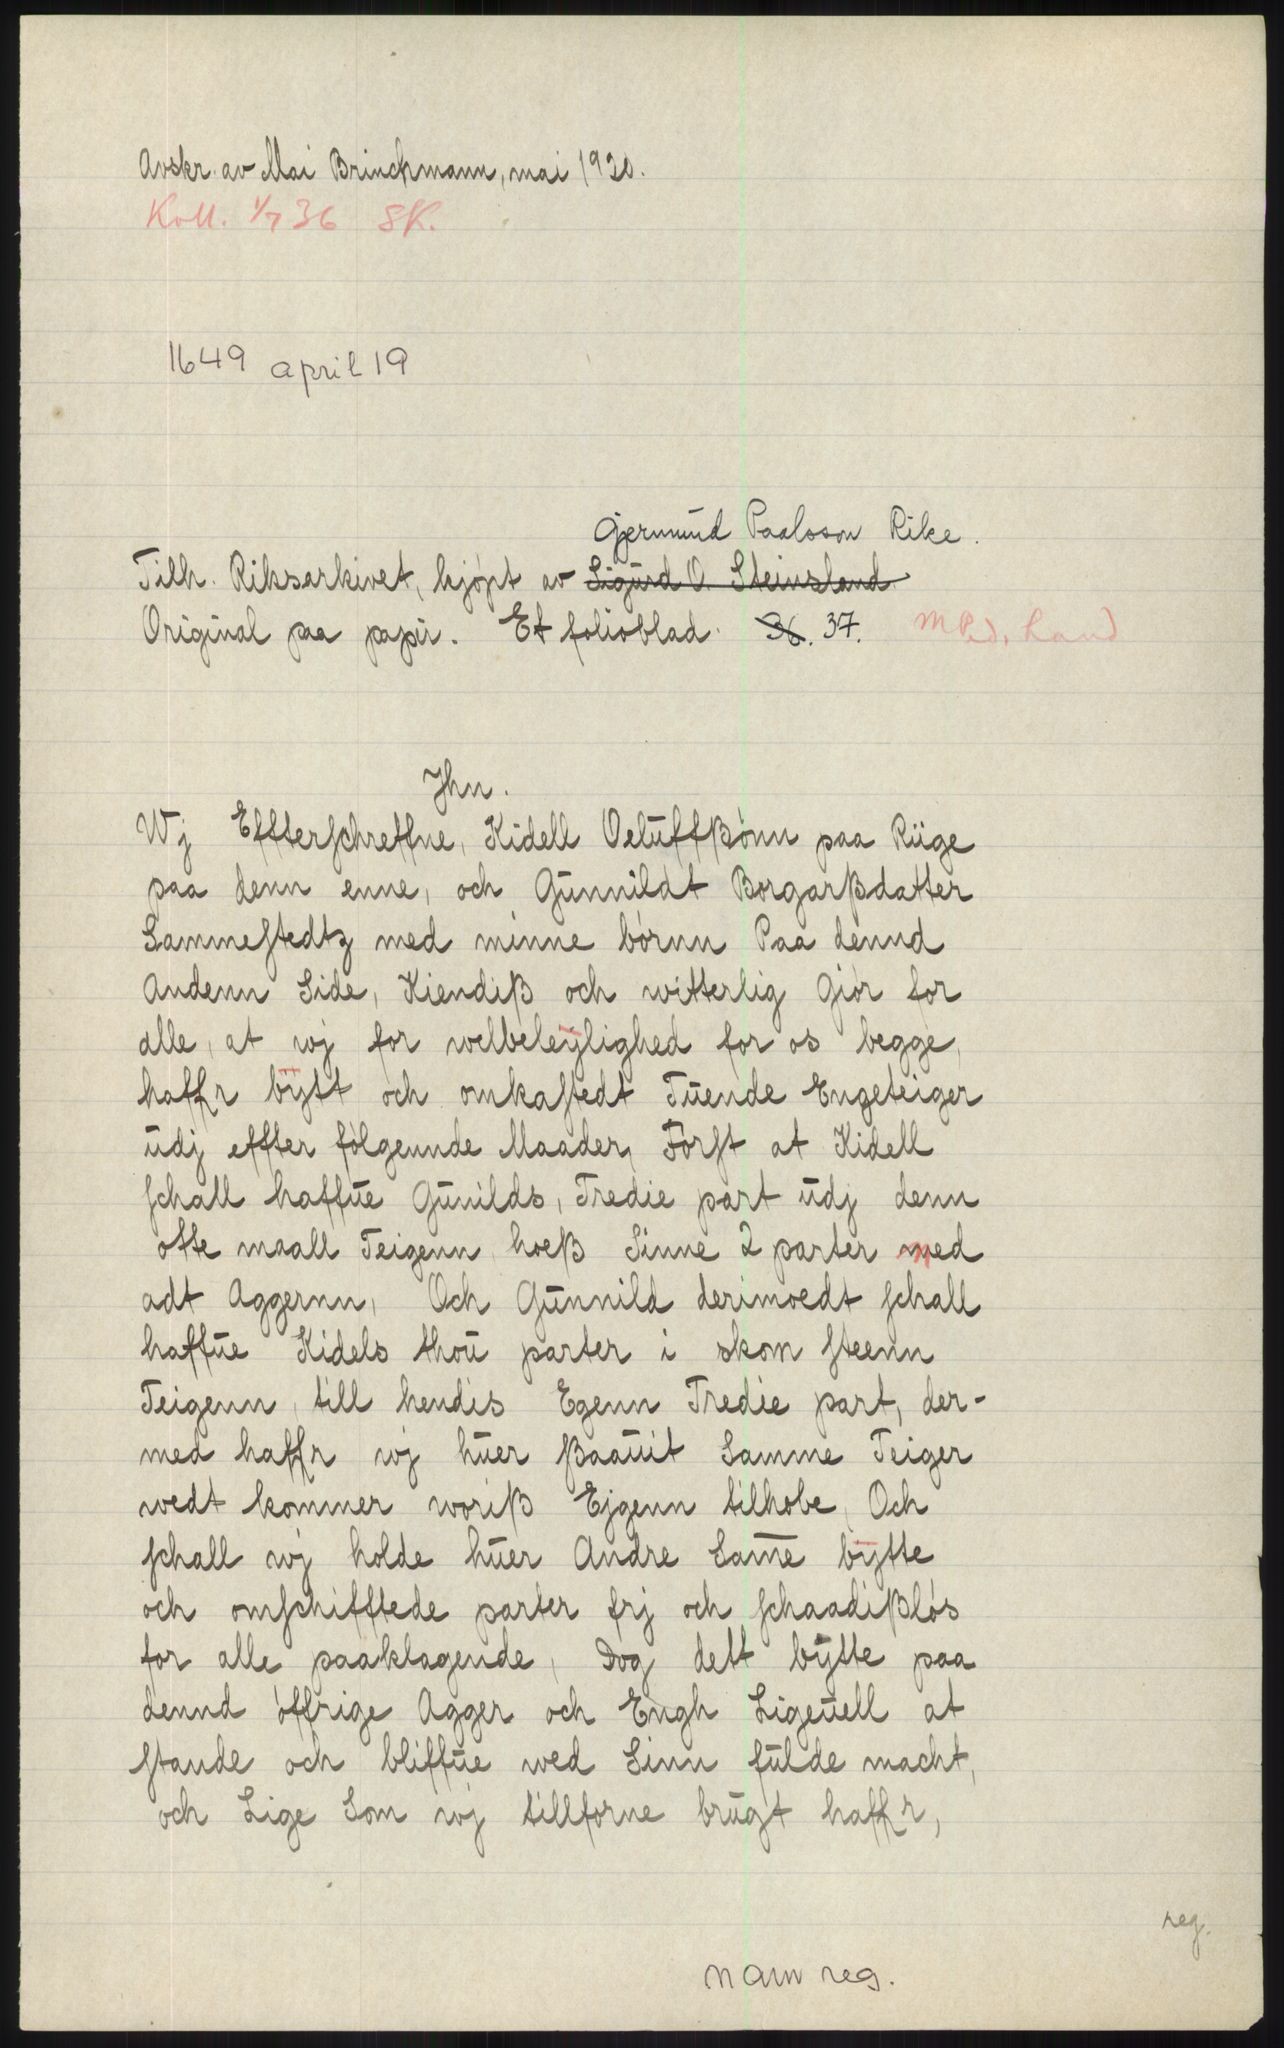 Avskr. av Mai Brinchmann, mai 1920.
Koll. 1/7 36 SK.
1649 april 19
Gjermund Paalsson Rike.
Tilh. Riksarkivet, kjøpt av Sigurd O. Steinsland
Original paa papir. Et folioblad. 36. 37.
Jhn.
Wj Effterschreffne, Kidell Oeluffßònn paa Riige
paa denn enne, och Gunnildt Borgarßdatter
Sammestedtz med minne bórnn Paa dennd
Andenn Side, Kiendiß och witterlig Giór for
alle, at wj for welbeleÿlighed for os begge,
haffr bÿtt och omkastedt Tuende Engeteiger
udj effter fólgennde Maader, Fórst at Kidell
schall haffue Gunilds, Tredie part udj denn
otte maall Teigenn hoeß Sinne 2 parter med
adt Aggernn, Och Gunnild derimoedt schall
haffue Kidels thou parter i skom steenn
Teigenn, till hendis Egenn Tredie part, der-
med haffr wj huer ßaauit Samme Teiger
wedt kommer woriß Ejgenn tilhobe, Och
schall wj holde huer Andre Same bÿtte
och omschifftede parter frj och schaadißlós
for alle paaklagende, Dog dett bÿtte paa
dennd óffrige Agger och Engh Ligeuell at
stande och bliffue wed Sinn fulde macht,
och Lige Som wj tillforne brugt haffr,
reg.
navn reg.